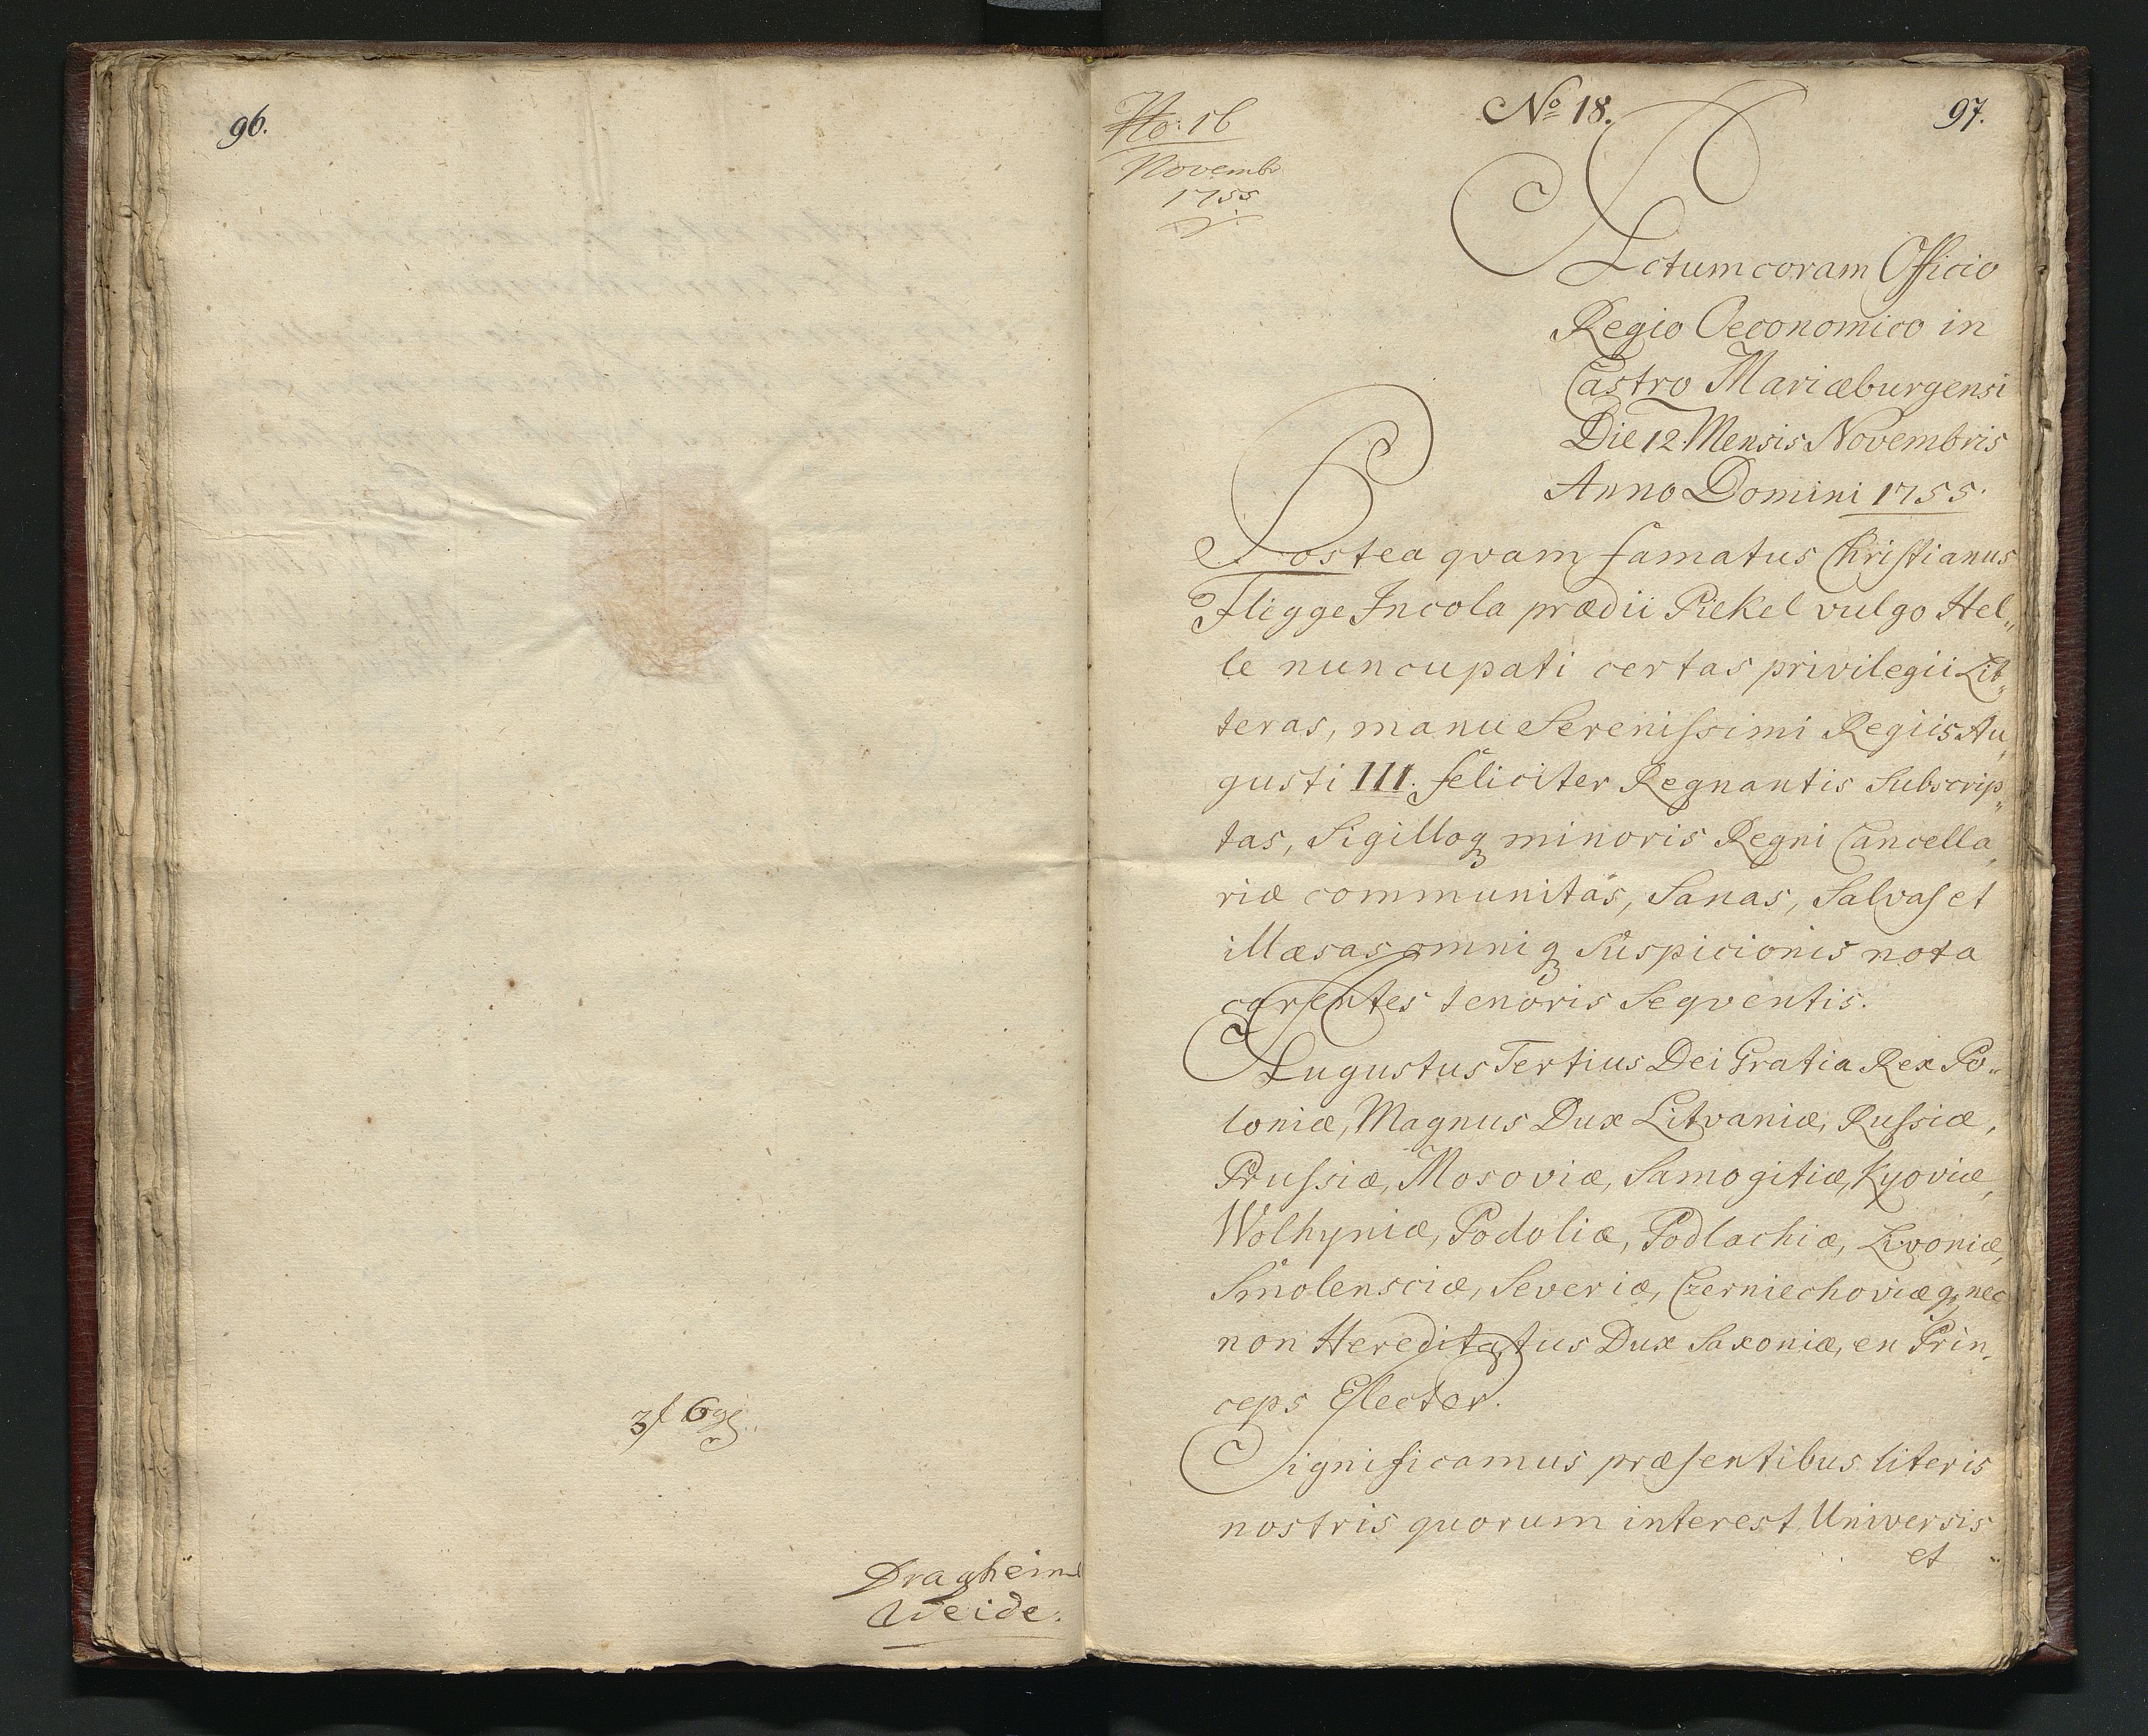 96.
3f 6 gl
Dragheim
Weide.
No: 16
Novembr
1755
No 18.
97.
Actum coram Officio
Regio Oeconomico in
Castro Mariæburgensi
Die 12. Mensis Novembris
Anno Domini 1755.
Postea qvam famatus Christianus
Fligge Incola prædii Piekel vulgo Hel„
le nuncupati certas privilegii Lit„
teras, manu Serenissimi Regiis Au„
gusti III. feliciter Regnantis Subscrip„
tas, Sigilloq minoris Regni Cancella„
riæ communitas, Sanas, Salvas et
illæsas omniq Suspicionis nota
carentes tenoris Seqventis.
Augustus Tertius Dei Gratia Rex Po„
loniæ, Magnus Dux Litvaniæ, Russiæ,
Prussiæ, Mosoviæ, Samogitiæ, Kyoviæ,
Wolhyniæ, Podoliæ, Podlachiæ, Livoniæ,
Smolensciæ, Severiæ, Czerniechoviæq, nec
non Hereditatius Dux Saxoniæ, en Prin„
ceps Elector.
Significamus præsentibus literis
nostris quorum interest Universis
et